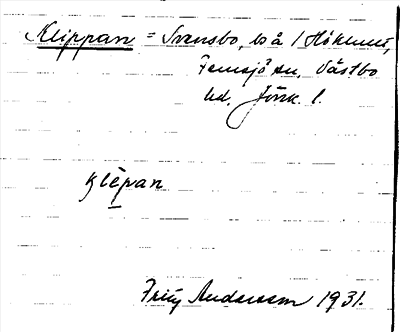 Klippan = Svensbo, bs å 1 Hökhult,
Femsjö sn, Västbo
hd, Jönk. l.
Klepan
Fritz Andersson 1931.